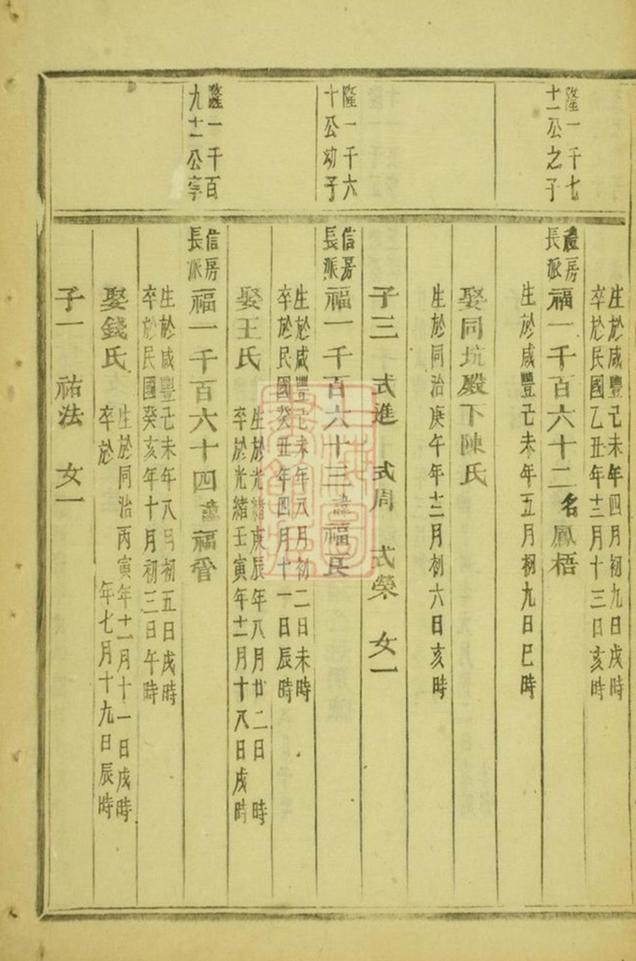 生於咸豐己未年四月初九日戌時
卒於民國乙丑年十二月十三日亥時
隆一千七
十一公之子
禮房
長派
福一千百六十二 名鳳梧
生於咸豐己未年五月初九日巳時
娶同坑殿下陳氏
生於同治庚午年十二月初六日亥時
子三 式進 式周 式榮 女一
隆一千六
十公幼子
信房
長派
福一千百六十三 諱福民
生於咸豐己未年八月初二日未時
卒於民國癸丑年四月十一日辰時
娶王氏
生於光緒庚辰年八月廿二日 時
卒於光緒壬寅年十二月十八日戌時
隆一千百
九十一公字
信房
長派
福一千百六十四 諱福晉
生於咸豐己未年八月初五日戌時
卒於民國癸亥年十月初三日午時
娶錢氏
生於同治丙寅年十一月十一日戌時
卒於 年七月十九日辰時
子一 祐法 女一